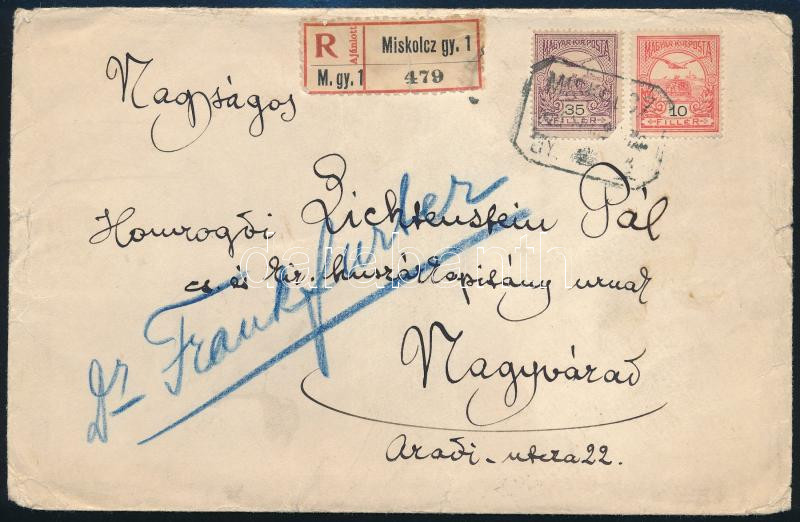 R
Ajánlott
Miskolcz gy. 1
M. gy. 1
479
MAGYAR KIR. POSTA
35
FILLÉR
MAGYAR KIR. POSTA
10
FILLÉR
MISKOLCZ
Nagságos
Homrogdi Lichtenstein Pál
cs és kir. huszárkapitány urnak
Dr Frankfurter
Nagyvárad
Aradi-utcza 22.
darabanth